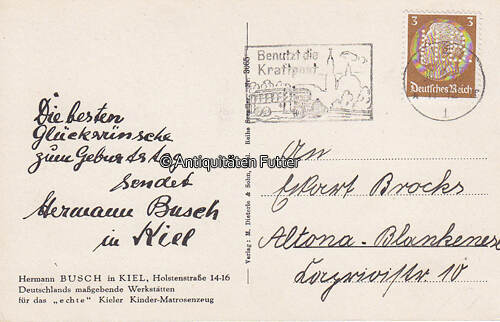 Die besten
Glückwünsche
zum Geburtstag
sendet
Hermann Busch
in Kiel
Hermann BUSCH in KIEL, Holstenstraße 14-16
Deutschlands maßgebende Werkstätten
für das „echte" Kieler Kinder-Matrosenzeug
Verlag: M. Dieterle & Sohn,
Reihe
Nr. 3065
Benutzt die
Kraftpost
3 3
Deutsches Reich
An
Eckart Brocks
Altona-Blankenese
10
© Antiquitäten Futter